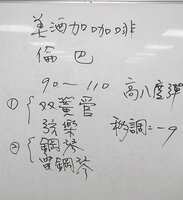 美酒加咖啡
倫巴
90～110 高八度彈
① 双簧管
弦樂 移調=-9
② 鋼琴
電鋼琴